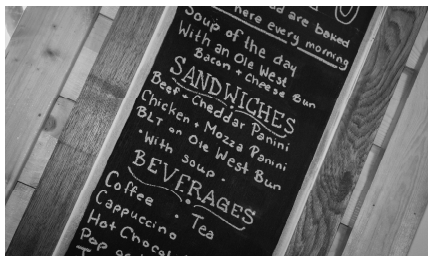 ad are baked
here every morning
Soup of the day
With an Ole West
Bacon + Cheese Bun
SANDWICHES
Beef + Cheddar Panini
Chicken + Mozza Panini
BLT on Ole West Bun
• With soup •
BEVERAGES
Coffee • Tea
Cappuccino
Hot Chocol
Pop